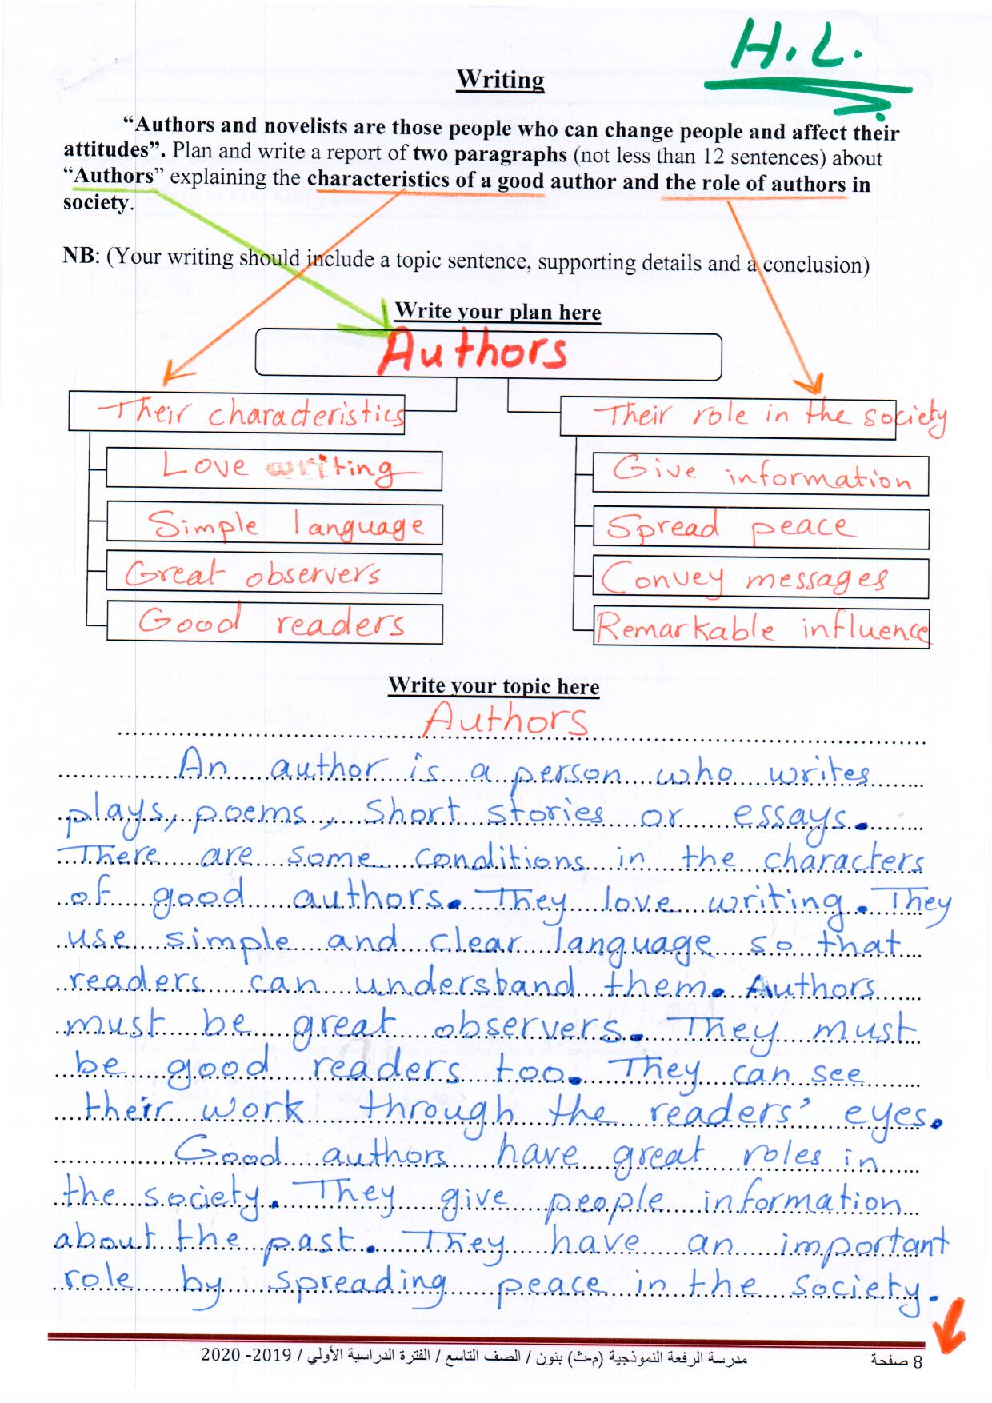 H.L.
Writing
“Authors and novelists are those people who can change people and affect their
attitudes”. Plan and write a report of two paragraphs (not less than 12 sentences) about
“Authors” explaining the characteristics of a good author and the role of authors in
society.
NB: (Your writing should include a topic sentence, supporting details and a conclusion)
Write your plan here
Authors
Their characteristics
Love writing
Simple language
Great observers
Good readers
Their role in the society
Give information
Spread peace
Convey messages
Remarkable influence
Write your topic here
Authors
An author is a person who writes
plays, poems, short stories or essays.
There are some conditions in the characters
of good authors. They love writing. They
use simple and clear language so that
readers can understand them. Authors
must be great observers. They must
be good readers too. They can see
their work through the readers' eyes.
Good authors have great roles in
the society. They give people information
about the past. They have an important
role by spreading peace in the society.
مدرسة الرفعة النموذجية (م-ث) بنون / الصف التاسع / الفترة الدراسية الأولي / 2019- 2020
8 صفحة